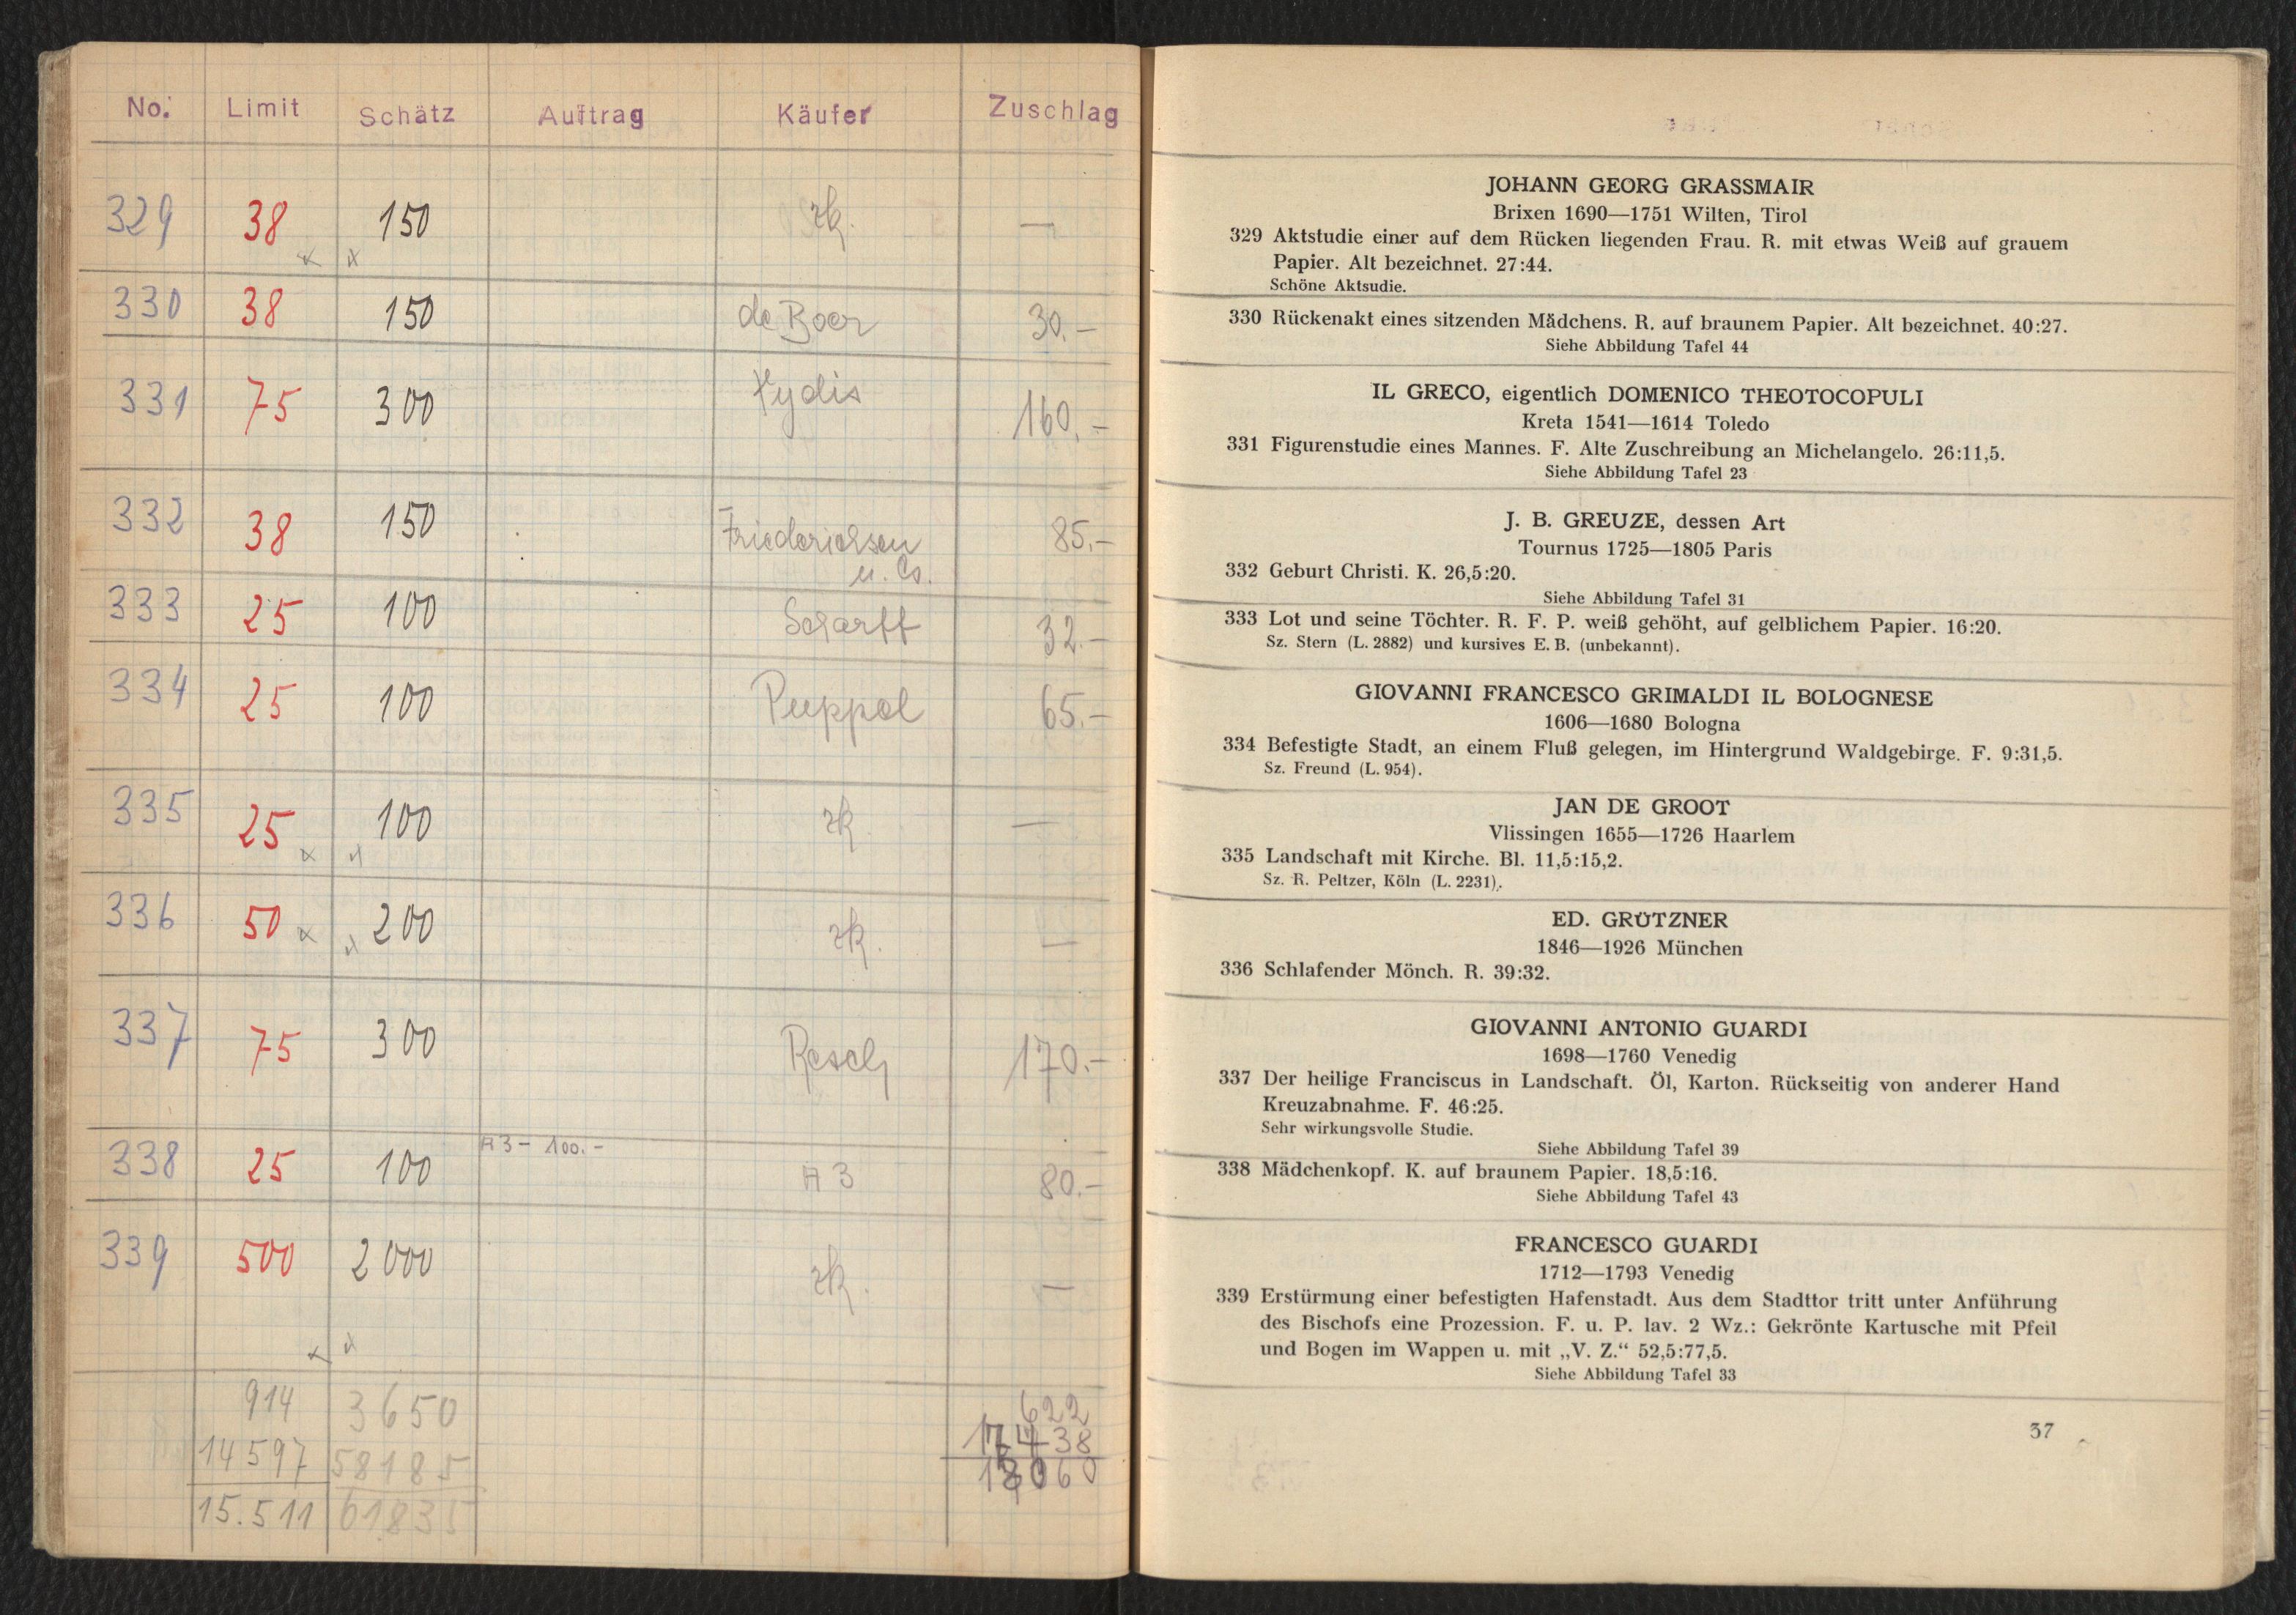 No. Limit Schätz Auftrag Käufer Zuschlag
329 38 150 zk. —
330 38 150 de Boer 30.-
331 75 300 160.-
332 38 150 Friederichsen 85.-
u. Co.
333 25 100 Scharff 32.-
334 25 100 Puppel 65.-
335 25 100 zk. —
336 50 200 zk. —
337 75 300 Resch 170.-
338 25 100 A3 - 100.- A3 80.-
339 500 2000 zk. —
914 3650 622
14597 58185 17438
15.511 61835 18060
JOHANN GEORG GRASSMAIR
Brixen 1690—1751 Wilten, Tirol
329 Aktstudie einer auf dem Rücken liegenden Frau. R. mit etwas Weiß auf grauem
Papier. Alt bezeichnet. 27:44.
Schöne Aktsudie.
330 Rückenakt eines sitzenden Mädchens. R. auf braunem Papier. Alt bezeichnet. 40:27.
Siehe Abbildung Tafel 44
IL GRECO, eigentlich DOMENICO THEOTOCOPULI
Kreta 1541—1614 Toledo
331 Figurenstudie eines Mannes. F. Alte Zuschreibung an Michelangelo. 26:11,5.
Siehe Abbildung Tafel 23
J. B. GREUZE, dessen Art
Tournus 1725—1805 Paris
332 Geburt Christi. K. 26,5:20.
Siehe Abbildung Tafel 31
333 Lot und seine Töchter. R. F. P. weiß gehöht, auf gelblichem Papier. 16:20.
Sz. Stern (L. 2882) und kursives E. B. (unbekannt).
GIOVANNI FRANCESCO GRIMALDI IL BOLOGNESE
1606—1680 Bologna
334 Befestigte Stadt, an einem Fluß gelegen, im Hintergrund Waldgebirge. F. 9:31,5.
Sz. Freund (L. 954).
JAN DE GROOT
Vlissingen 1655—1726 Haarlem
335 Landschaft mit Kirche. Bl. 11,5:15,2.
Sz. R. Peltzer, Köln (L. 2231).
ED. GRÜTZNER
1846—1926 München
336 Schlafender Mönch. R. 39:32.
GIOVANNI ANTONIO GUARDI
1698—1760 Venedig
337 Der heilige Franciscus in Landschaft. Öl, Karton. Rückseitig von anderer Hand
Kreuzabnahme. F. 46:25.
Sehr wirkungsvolle Studie.
Siehe Abbildung Tafel 39
338 Mädchenkopf. K. auf braunem Papier. 18,5:16.
Siehe Abbildung Tafel 43
FRANCESCO GUARDI
1712—1793 Venedig
339 Erstürmung einer befestigten Hafenstadt. Aus dem Stadttor tritt unter Anführung
des Bischofs eine Prozession. F. u. P. lav. 2 Wz.: Gekrönte Kartusche mit Pfeil
und Bogen im Wappen u. mit „V. Z.“ 52,5:77,5.
Siehe Abbildung Tafel 33
37